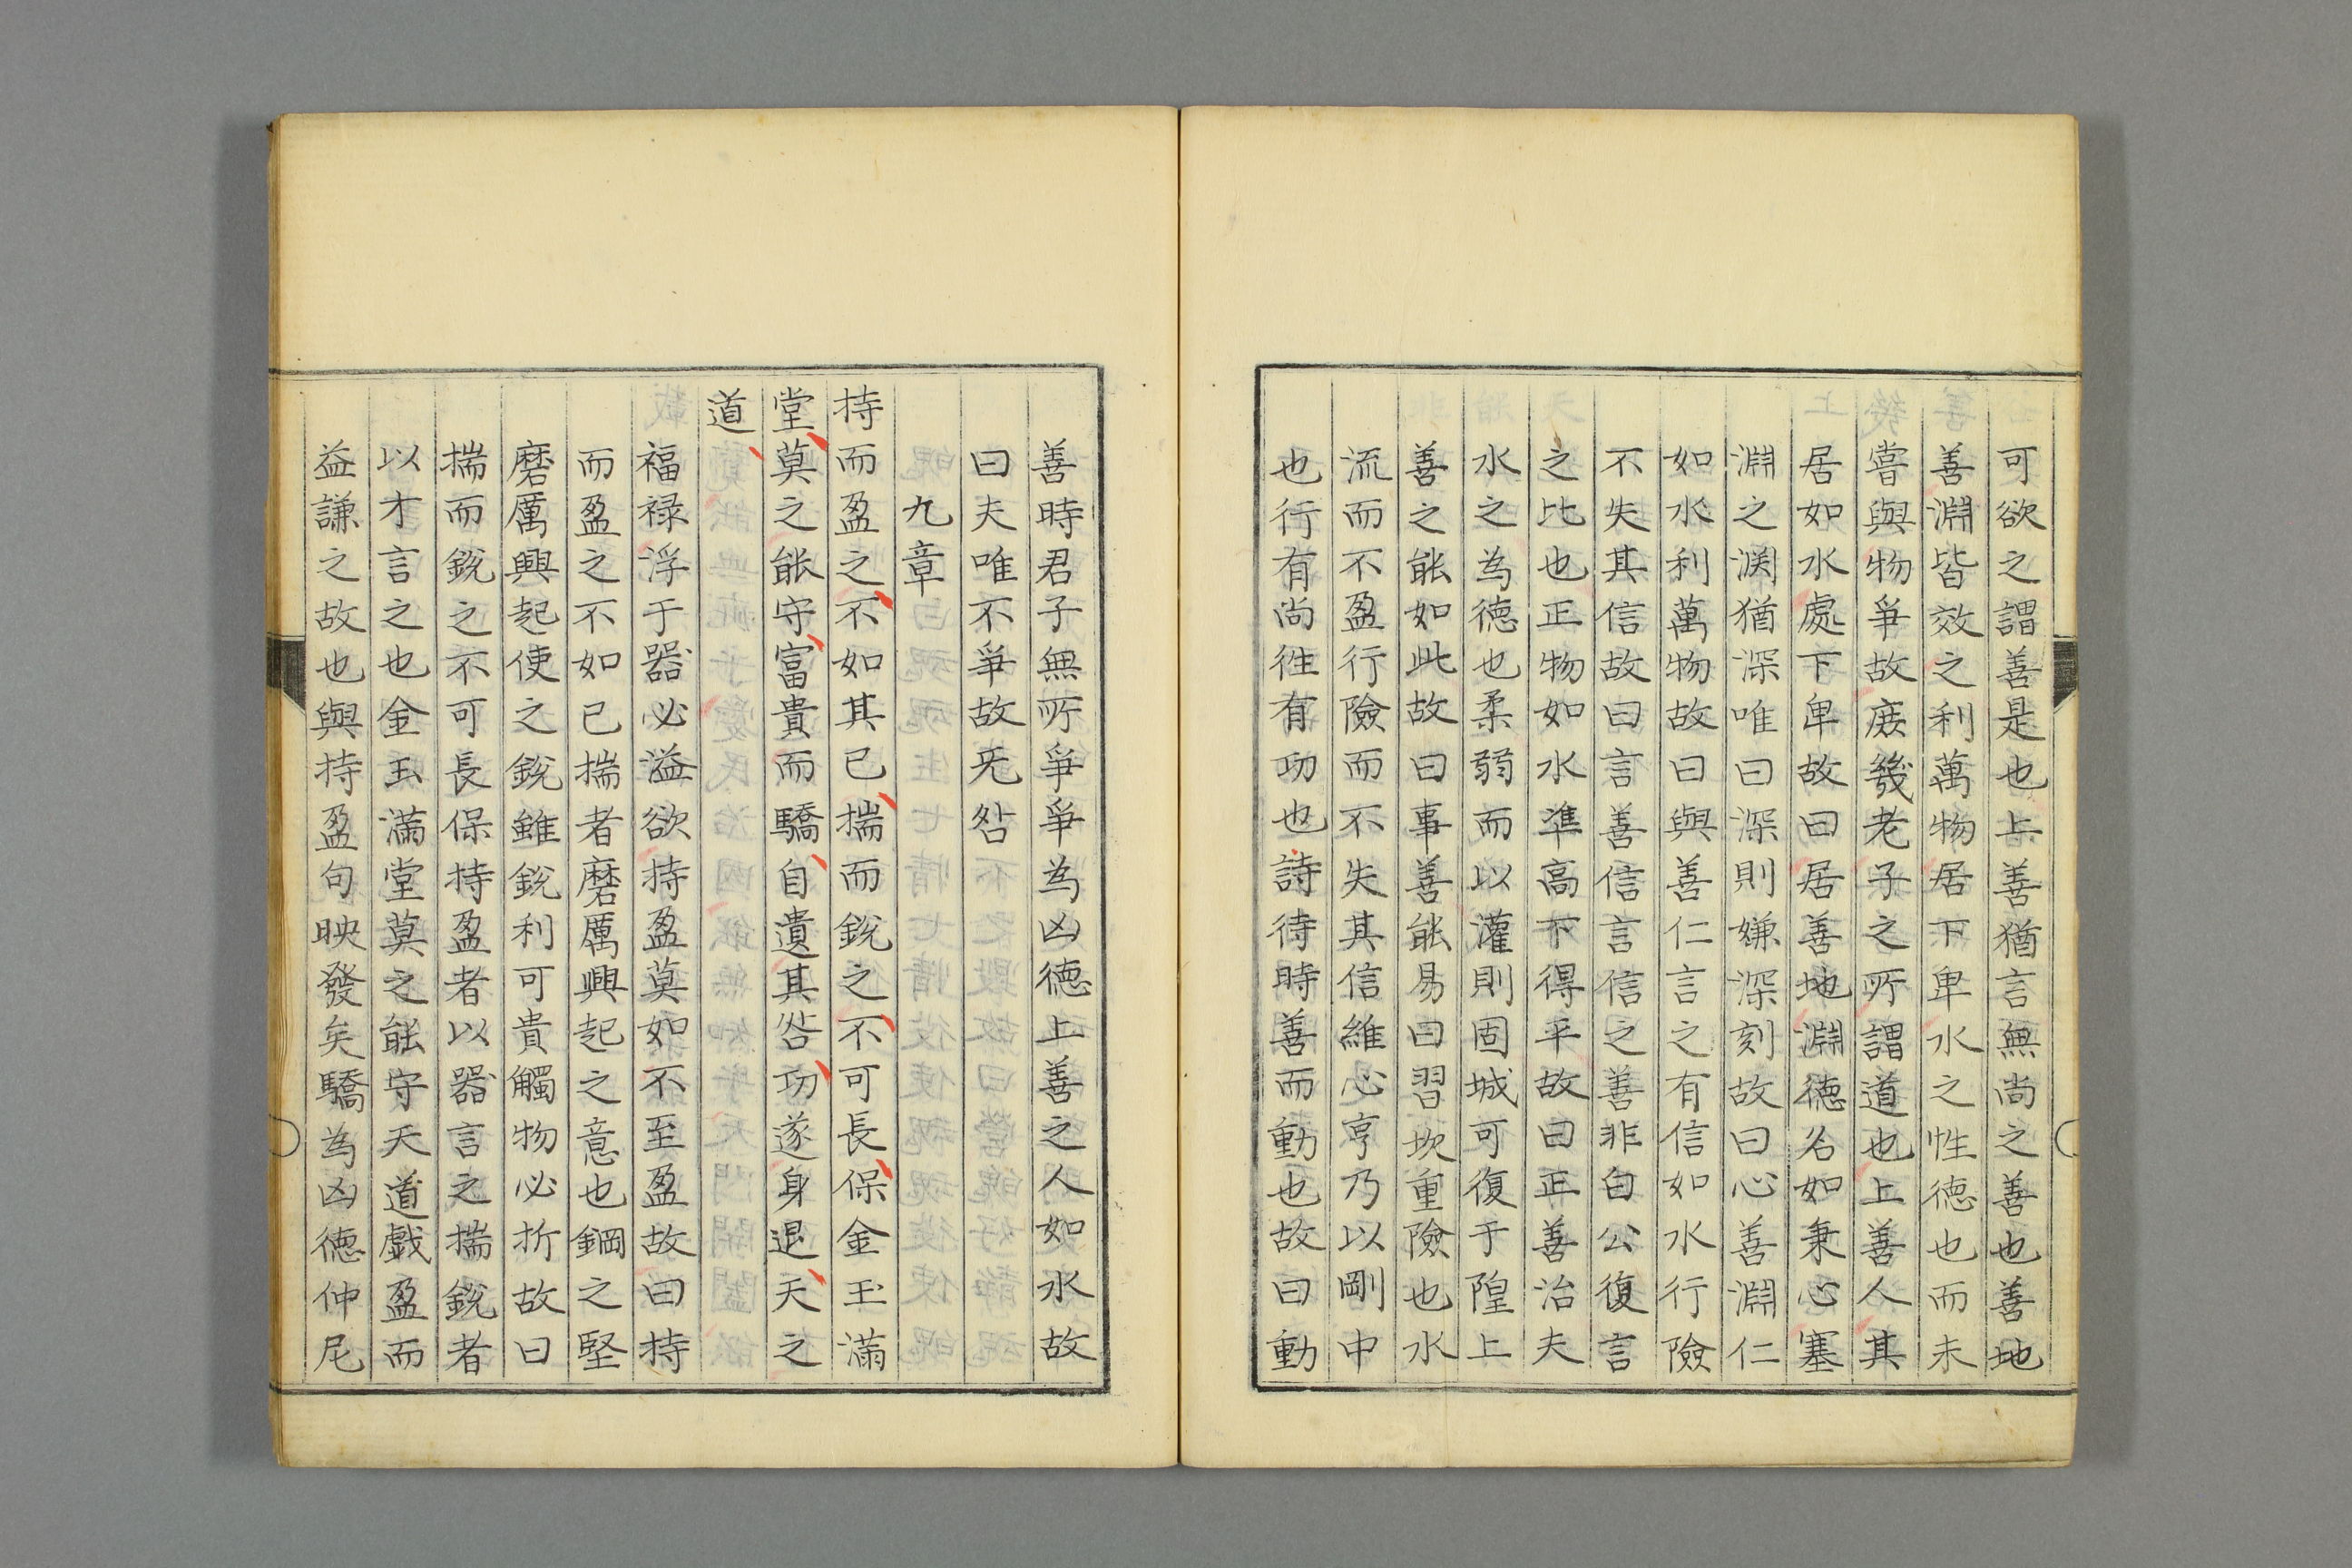 可欲之謂善是也上善猶言無尚之善也善地
善淵皆效之利萬物居下卑水之性徳也而未
嘗與物爭故庻幾老子之所謂道也上善人其
居如水處下卑故曰居善地淵徳名如秉心塞
淵之渕猶深唯曰深則嫌深刻故曰心善淵仁
如水利萬物故曰與善仁言之有信如水行險
不失其信故曰言善信言信之善非白公復言
之比也正物如水準高下得平故曰正善治夫
水之為徳也柔弱而以灌則固城可復于隍上
善之能如此故曰事善能易曰習坎重險也水
流而不盈行險而不失其信維心亨乃以剛中
也行有尚徃有功也詩待時善而動也故曰動
善時君子無所爭爭為凶德上善之人如水故
曰夫唯不爭故旡咎
九章
持而盈之不如其已揣而銳之不可長保金玉滿
堂莫之能守富貴而驕自遺其咎功遂身退天之
道
福禄浮于器必溢欲持盈莫如不至盈故曰持
而盈之不如已揣者磨厲興起之意也鋼之堅
磨厲興起使之銳雖銳利可貴觸物必折故曰
揣而銳之不可長保持盈者以器言之揣銳者
以才言之也金玉滿堂莫之能守天道戲盈而
益謙之故也與持盈句映發矣驕為凶德仲尼